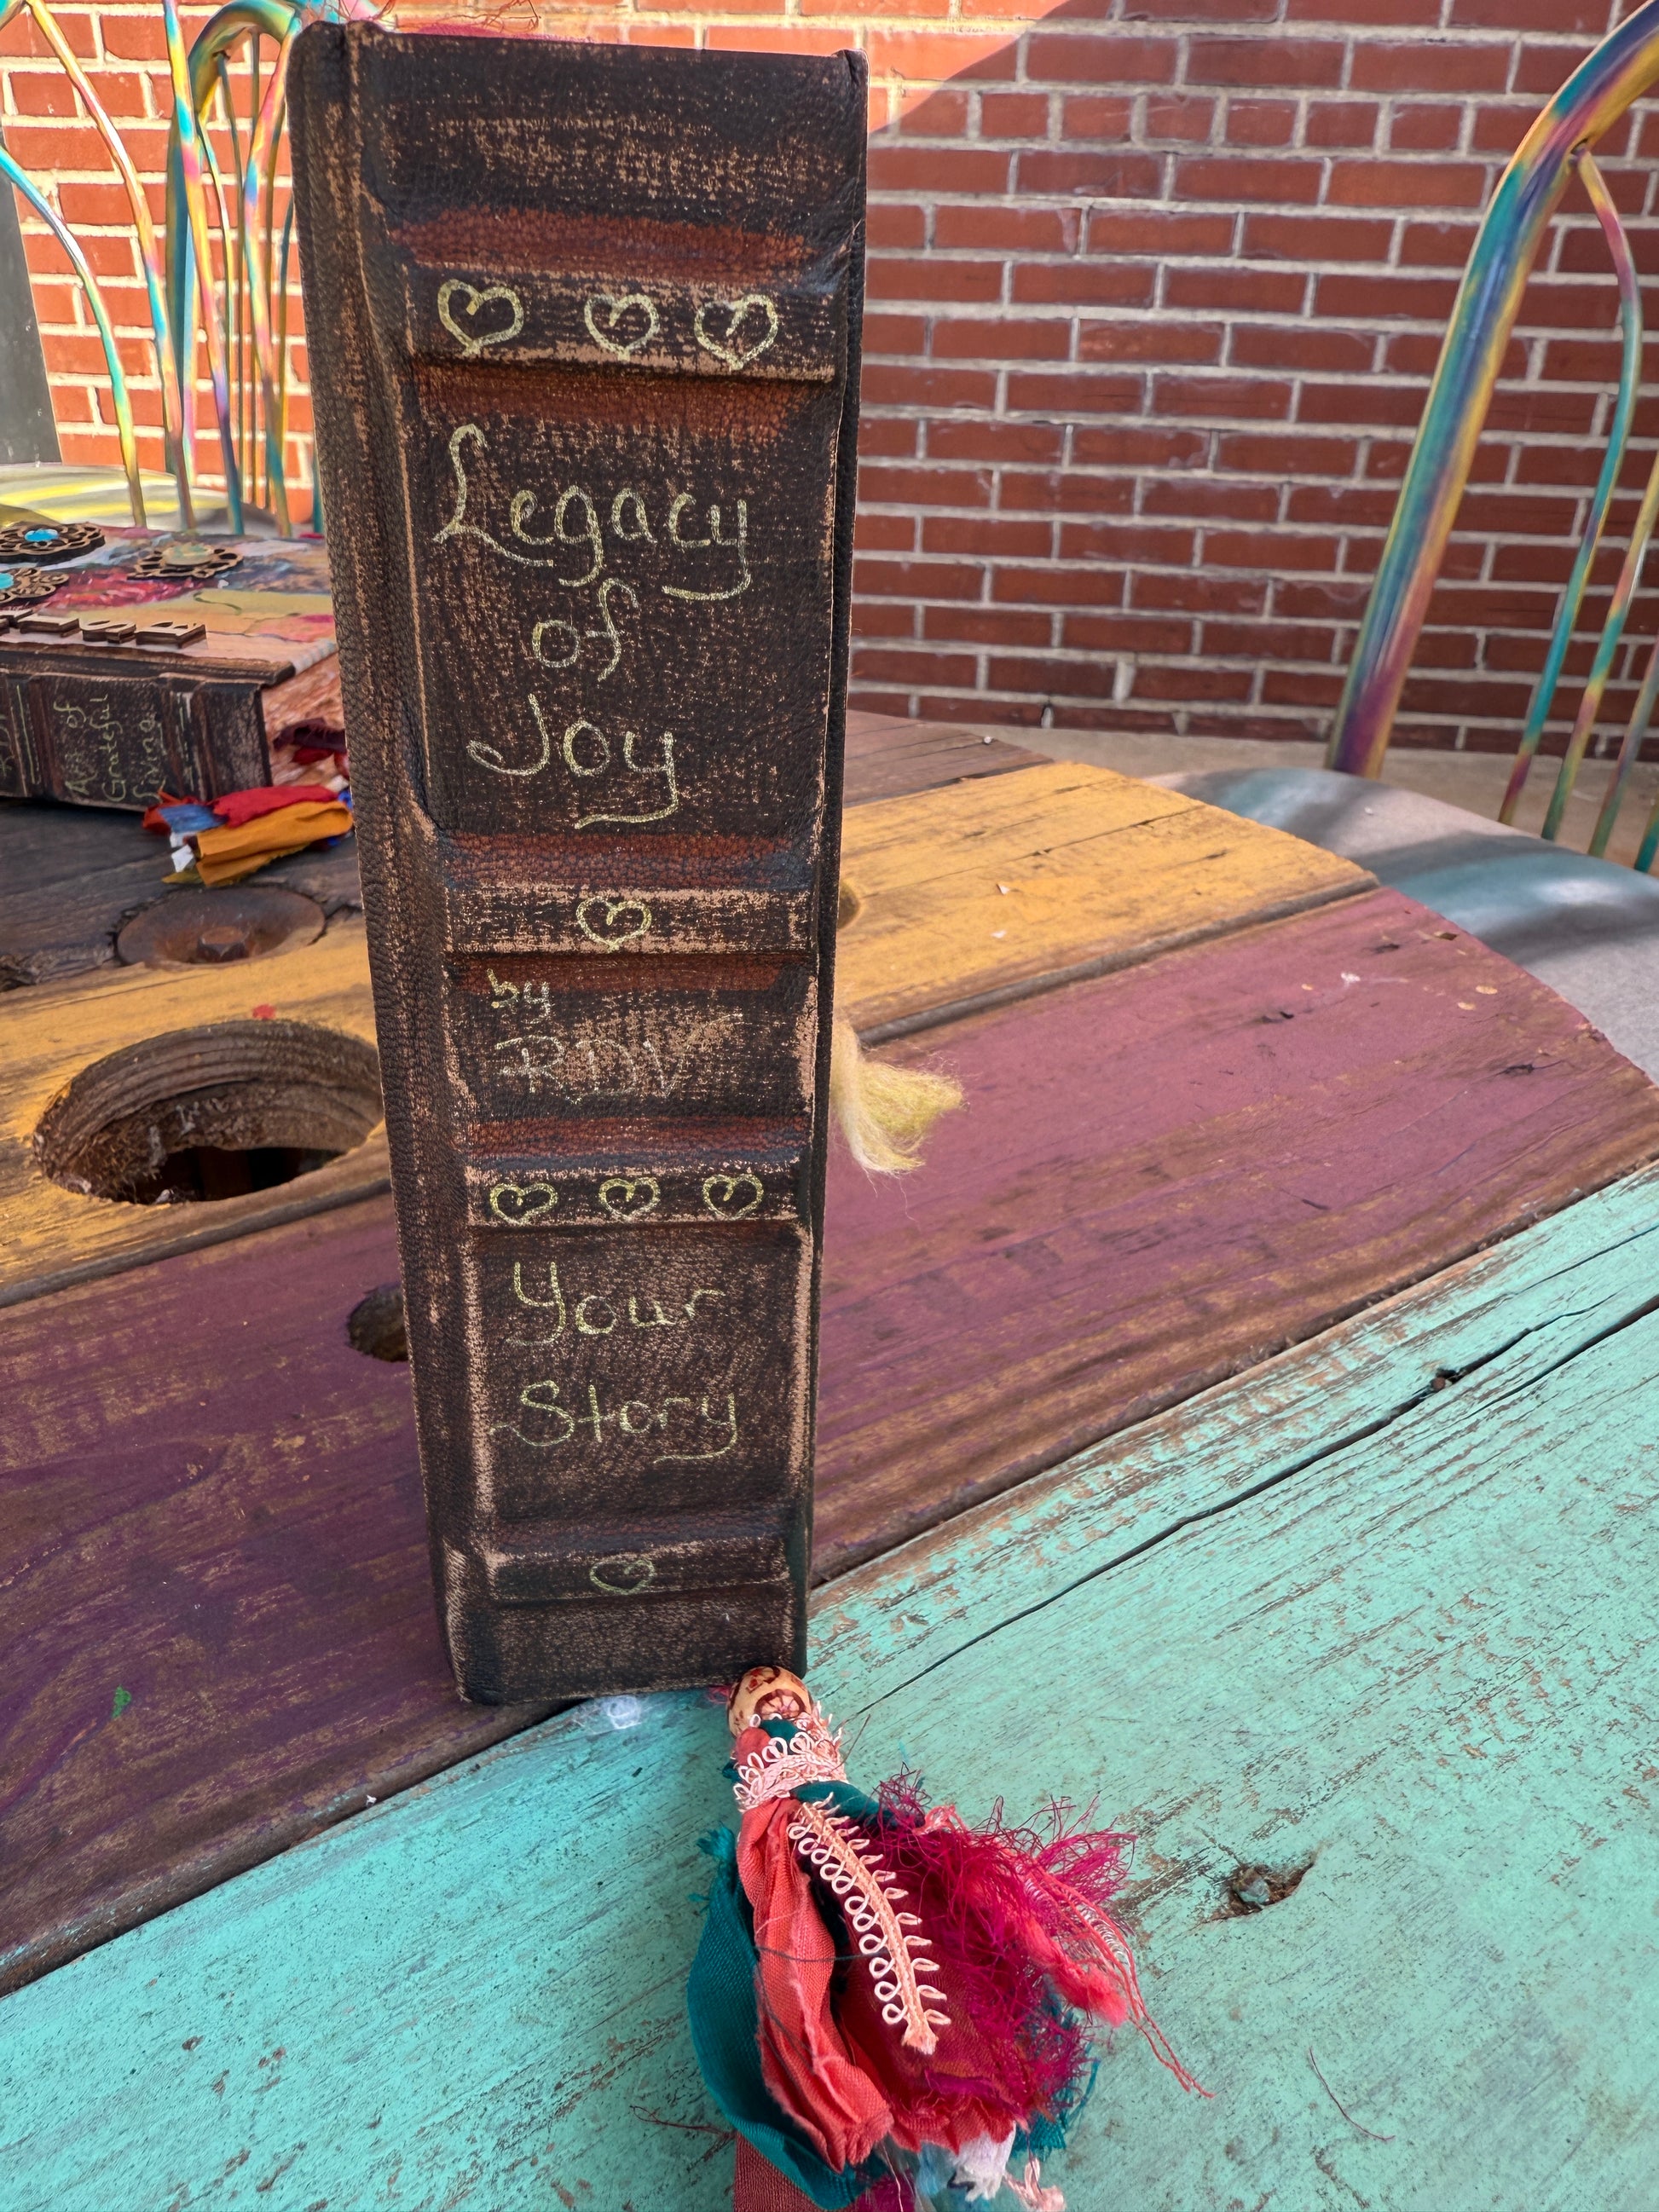 Legacy
of
Joy
by
RDV
Your
Story
Art of
Grateful
Living